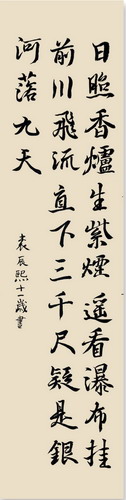 日照香爐生紫煙遥看瀑布挂
前川飛流直下三千尺疑是銀
河落九天
袁辰熙十一歲書